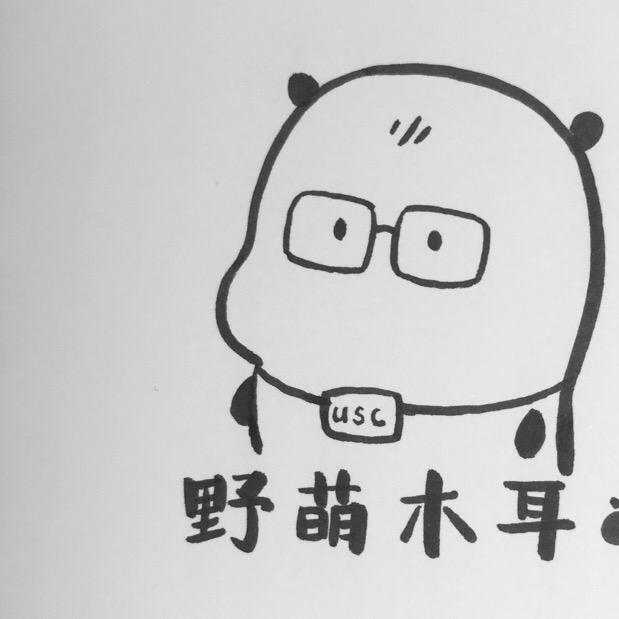 usc
野萌木耳